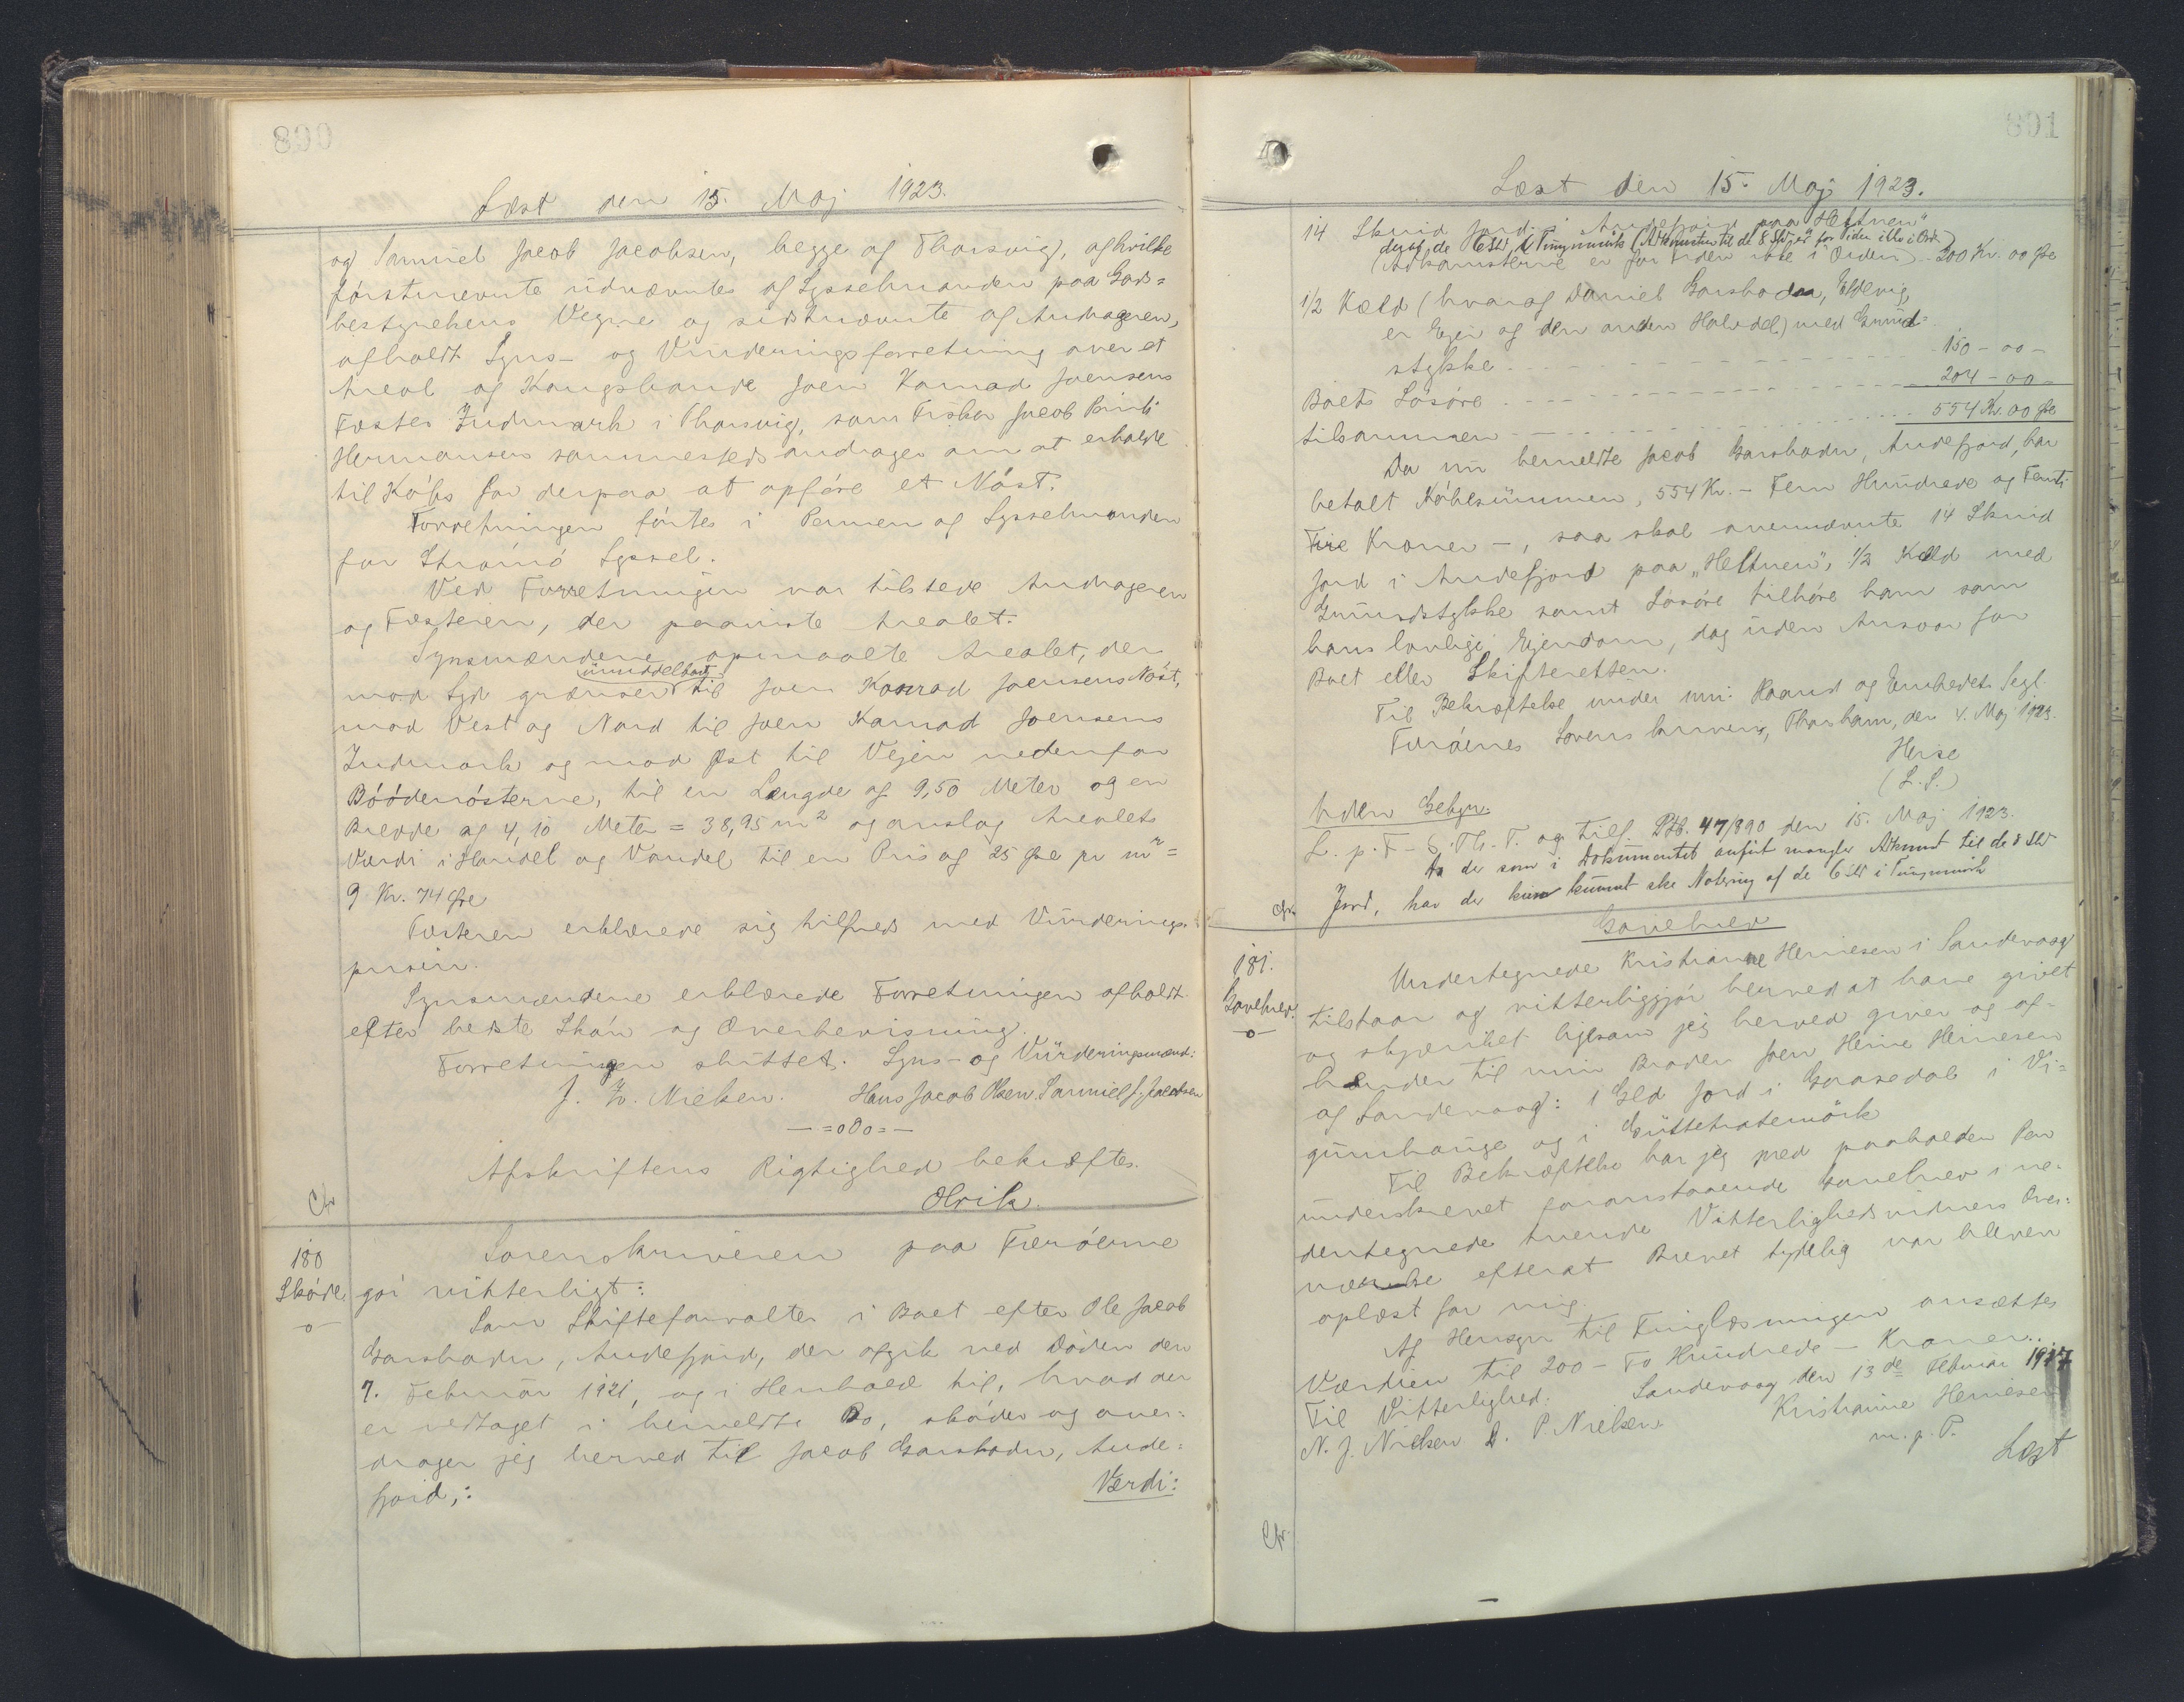 890
Læst den 15. Maj 1923.
og Samuel Jacob Jacobsen, begge af Thorsvig, af hvilke
førstnævnte udnævntes af Sysselmanden paa Jord=
bestyrelsens Vegne og sidstnævnte af Andrageren,
afholdt Syns- og Vurderingsforretning over et
Areal af Kongsbonde Joen Konrad Joensens
Fæstes Indmark i Thorsvig, som Fisker Jacob
Hermansen sammesteds andrager om at erholde
til Købs for derpaa at opføre et Nøst.
Forretningen førtes i Pennen af Sysselmanden
for Strømø Syssel.
Ved Forretningen var tilstede Andrageren
og Fæsteren, der paaviste Arealet.
Synsmændene opmaalte Arealet, der
mod Syd grænser umiddelbart til Joen Konrad Joensens Nøst,
mod Vest og Nord til Joen Konrad Joensens
Indmark og mod Øst til Vejen nedenfor
Bøødenøsterne, til en Længde af 9,50 Meter og en
Bredde af 4,10 Meter = 38,95 m² og anslog Arealets
Værdi i Handel og Vandel til en Pris af 25 Øre pr m² =
9 Kr. 74 Øre
Fæsteren erklærede sig tilfreds med Vurderings-
prisen.
Synsmændene erklærede Forretningen afholdt
efter bedste Skøn og Overbevisning.
Forretningen sluttet. Syns- og Vurderingsmænd:
J. W. Nielsen. Hans Jacob Olsen. Samuel J. Jacobsen
—=o0o=—
Afskriftens Rigtighed bekræftes.
Olrik.
180
Skøde.
o
Sorenskriveren paa Færøerne
gør vitterligt:
Som Skifteforvalter i Boet efter Ole Jacob
Garsbodn, Andefjord, der afgik ved Døden den
7. Februar 1921, og i Henhold til, hvad der
er vedtaget i bemeldte Bo, skøder og over:
drager jeg herved til Jacob Garsbodn, Ande=
fjord,:
Værdi:
891
Læst den 15. Maj 1923.
14 Skind Jord i Andefjord paa "Heltnen"
deraf de 6 Sk i Tungumørk (Adkomsten til de 8 Sk er for Tiden ikke i Ord.)
(Adkomsterne er for Tiden ikke i Orden) - 200 Kr. 00 Øre
1/2 Kæld (hvoraf Daniel Garsbodn, Eldevig,
er Ejer af den anden Halvdel) med Grund=
stykke - - - 150 - 00 -
Boets Løsøre - - - 204 - 00 -
tilsammen - - - 554 Kr. 00 Øre
Da nu bemeldte Jacob Garsbodn, Andefjord, har
betalt Købesummen, 554 Kr. - Fem Hundrede og Femti
Fire Kroner -, saa skal ovennævnte 14 Skind
Jord i Andefjord paa "Heltnen", 1/2 Kæld med
Grundstykke samt Løsøre tilhøre ham som
hans lovlige Ejendom, dog uden Ansvar for
Boet eller Skifteretten.
Til Bekræftelse under min Haand og Embedets Segl.
Færøernes Sorenskriveri, Thorshavn, den 4. Maj 1923.
Herse
(L.S.)
Uden Gebyr.
L. p. F. - S. Th. T. og tilf. Ptb. 47/890 den 15. Maj 1923.
Da der som i Dokumentet anført mangler Adkomst til de 8 Sk
Jord, har der kun kunnet ske Notering af de 6 Sk i Tungumørk
181.
Gavebrev.
o
Gavebrev
Undertegnede Kristianne Heinesen i Sandevaag
tilstaar og vitterliggjør herved at have givet
og skjænket ligesom jeg herved giver og af-
hænder til min Broder Joen Heine Heinesen
af Sandevaag: 1 Gld Jord i Gaasedal i Vi=
gumhauge og i
Til Bekræftelse har jeg med paaholden Pen
underskrevet foranstaaende Gavebrev i ne-
dentegnede tvende Vitterlighedsvidners Over=
værelse efterat Brevet tydelig var bleven
oplæst for mig.
Af Hensyn til Tinglæsningen ansættes
Værdien til 200 - To Hundrede - Kroner.
Til Vitterlighed. Sandevaag den 13de Februar 1917
N. J. Nielsen D. P. Nielsen. Kristianne Heinesen
m. p. P.
Læst